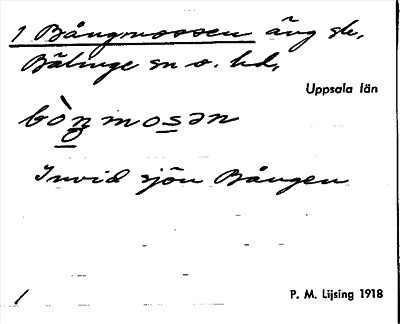 1 Bångmossen äng sk,
Bälinge sn o. hd,
Uppsala län
bòŋmosən
Invid sjön Bången
/
P. M. Lijsing 1918